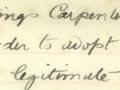 ings Carpenter
der to adopt
legitimate